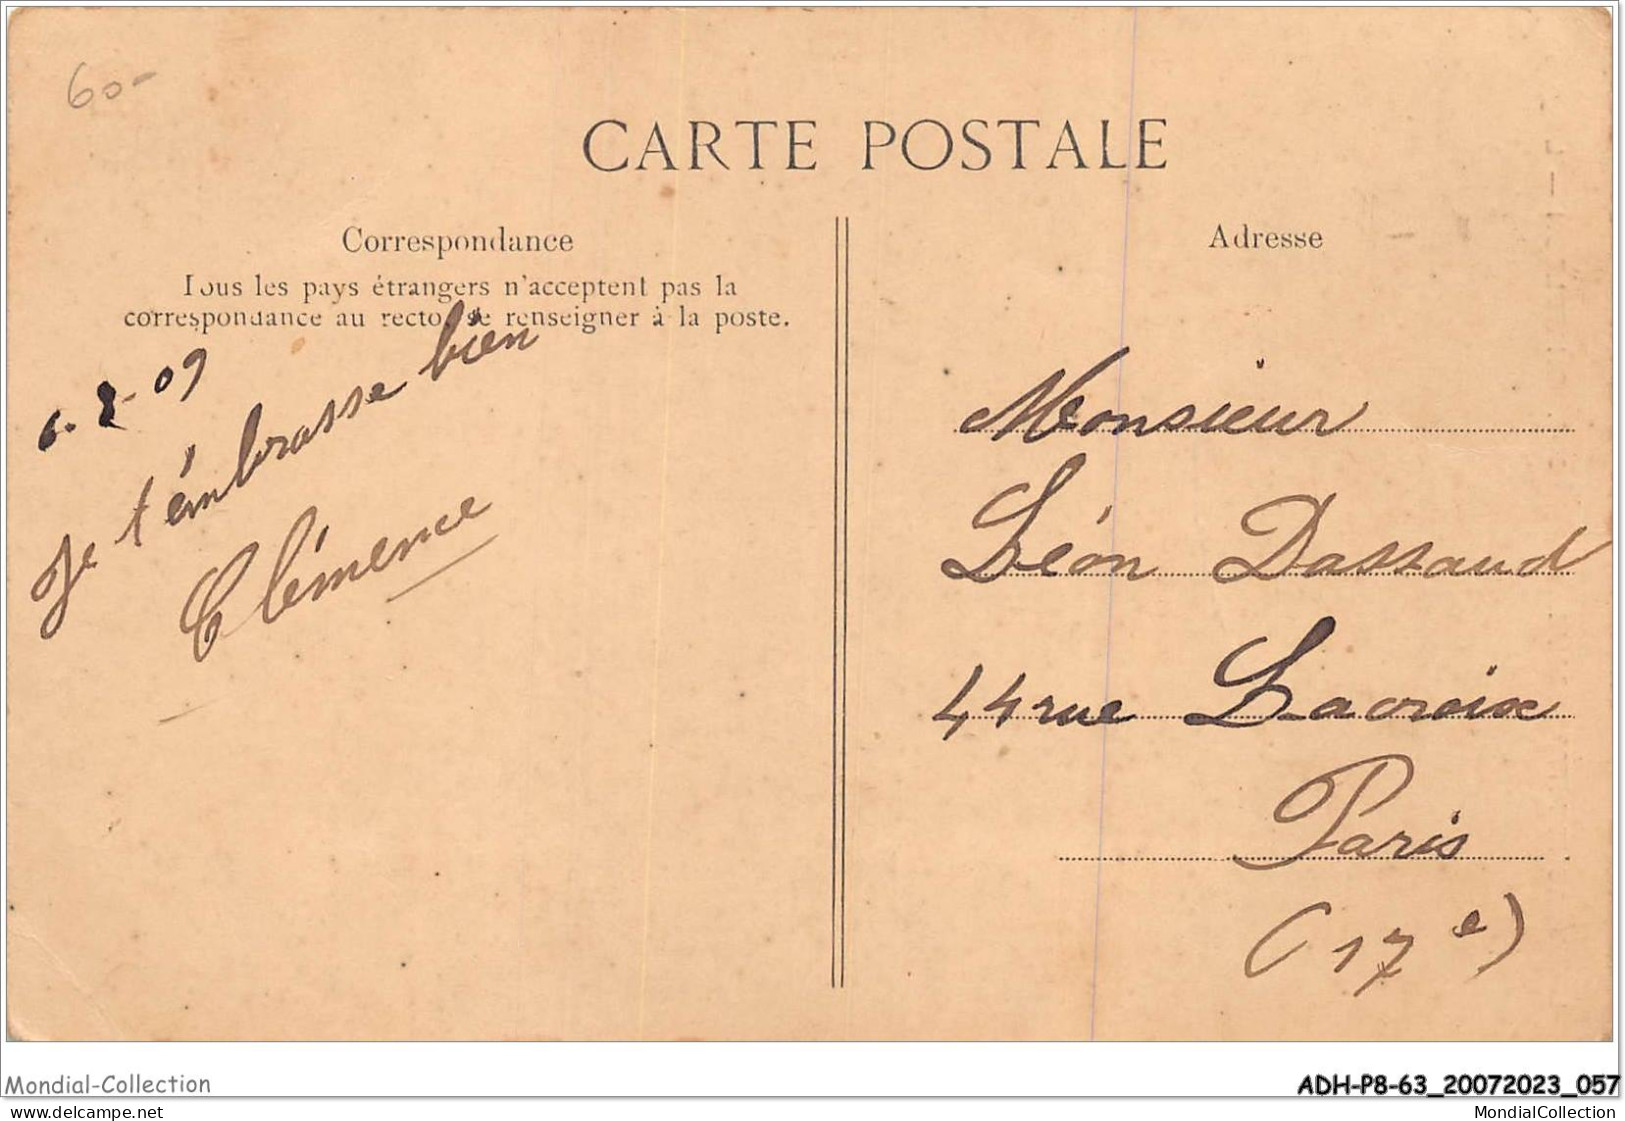 60-
CARTE POSTALE
Correspondance
Tous les pays étrangers n'acceptent pas la
correspondance au recto, se renseigner à la poste.
6-2-09
Je t'émbrasse bien
Clémence
Adresse
Monsieur
Léon Dassaud
44 rue Lacroix
Paris
(17e)
Mondial-Collection
delcampe.net
ADH-P8-63_20072023_057
MondialCollection